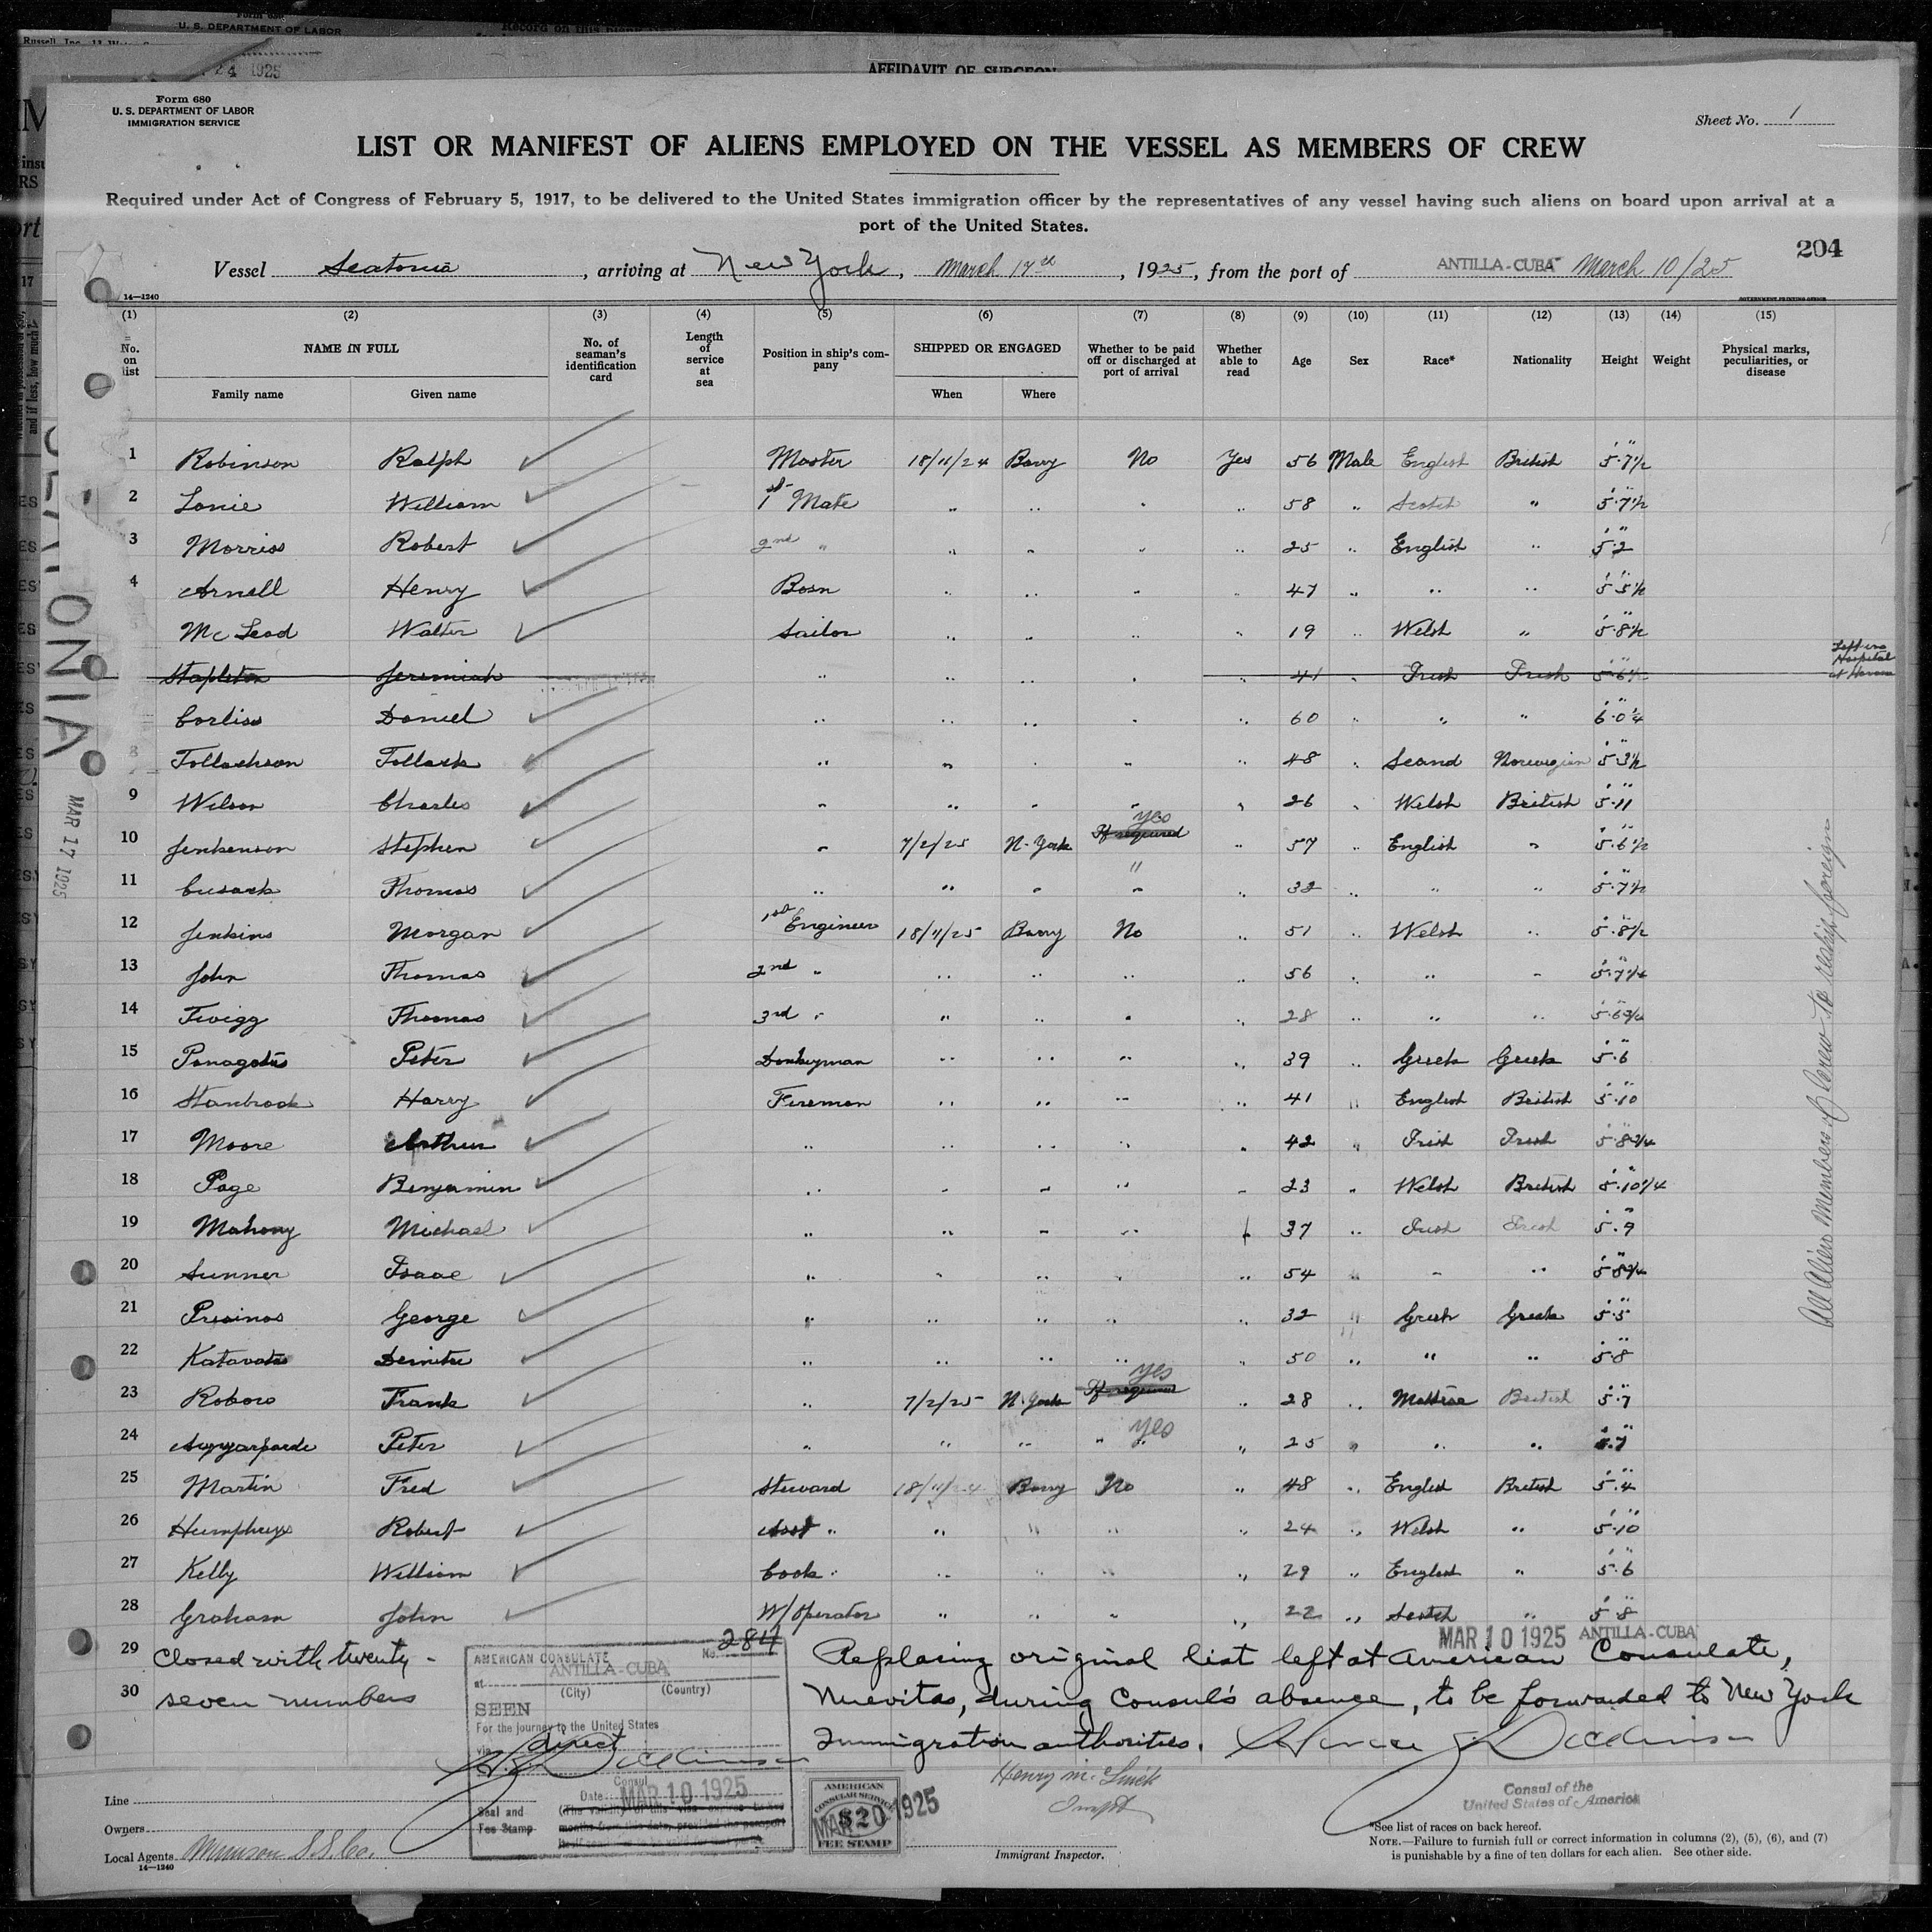 Form 680
U. S. DEPARTMENT OF LABOR
IMMIGRATION SERVICE
AFFIDAVIT OF SURGEON
24 1925
Sheet No. 1
LIST OR MANIFEST OF ALIENS EMPLOYED ON THE VESSEL AS MEMBERS OF CREW
Required under Act of Congress of February 5, 1917, to be delivered to the United States immigration officer by the representatives of any vessel having such aliens on board upon arrival at a
port of the United States.
204
Vessel Seatonia, arriving at New York, March 17th, 1925, from the port of ANTILLA-CUBA March 10/25
14—1240
GOVERNMENT PRINTING OFFICE
(1) (2) (3) (4) (5) (6) (7) (8) (9) (10) (11) (12) (13) (14) (15)
No. on list NAME IN FULL Family name Given name No. of seaman's identification card Length of service at sea Position in ship's company SHIPPED OR ENGAGED When Where Whether to be paid off or discharged at port of arrival Whether able to read Age Sex Race* Nationality Height Weight Physical marks, peculiarities, or disease
1 Robinson Ralph Master 18/11/24 Barry No Yes 56 Male English British 5'.7"½
2 Lonie William 1st Mate " " " " 58 " Scotch " 5'.7"½
3 Morriss Robert 2nd " " " " " 25 " English " 5'.2"
4 Arnell Henry Bosn " " " " 47 " " " 5'.5"½
McLeod Walter Sailor " " " " 19 " Welsh " 5'.8"½
Stapleton Jeremiah " " " " " 41 " Irish Irish 5'.6"½ Left in Hospital at Havana
Corliss Daniel " " " " " 60 " " " 6'.0"¼
8 Tollackson Tollack " " " " " 48 " Scand Norwegian 5'.3"½
9 Wilson Charles " " " " " 26 " Welsh British 5'.11"
10 Jenkenson Stephen " 7/2/25 N. York If required yes " 57 " English " 5'.6"½
11 Cusack Thomas " " " " " 32 " " " 5'.7"½
12 Jenkins Morgan 1st Engineer 18/11/25 Barry No " 51 " Welsh " 5'.8"½
13 John Thomas 2nd " " " " " 56 " " " 5'.7"¼
14 Twigg Thomas 3rd " " " " " 28 " " " 5'.6"¾
15 Panagotis Peter Donkeyman " " " " 39 " Greek Greek 5'.6"
16 Stanbrook Harry Fireman " " " " 41 " English British 5'.10"
17 Moore Arthur " " " " " 42 " Irish Irish 5'.8"¾
18 Page Benjamin " " " " " 23 " Welsh British 5'.10"¼
19 Mahony Michael " " " " 37 " Irish Irish 5'.9"
20 Sunner Isaac " " " " " 54 " " " 5'.8"¾
21 George " " " " " 32 " Greek Greek 5'.5"
22 Katavatis Demitri " " " " " 50 " " " 5'.8"
23 Roboro Frank " 7/2/25 N. York If required yes " 28 " Maltese British 5'.7"
24 Peter " " " " yes " 25 " " " 5'.7"
25 Martin Fred Steward 18/11/24 Barry No " 48 " English British 5'.4"
26 Humphreys Robert Asst " " " " " 24 " Welsh " 5'.10"
27 Kelly William Cook " " " " 29 " English " 5'.6"
28 Graham John W/Operator " " " " 22 " Scotch " 5'.8"
29 Closed with twenty-
30 seven members
All Alien Members of Crew to reship foreign
SEATONIA
MAR 17 1925
MAR 10 1925 ANTILLA-CUBA
Replacing original list left at American Consulate,
Nuevitas, during Consul's absence, to be forwarded to New York
Immigration authorities. Horace J. Dickinson
Consul of the
United States of America
AMERICAN CONSULATE No. 284
at ANTILLA-CUBA
(City) (Country)
SEEN
For the journey to the United States
via direct
H. J. Dickinson
Consul
Date MAR 10 1925
Seal and
Fee Stamp
(The validity of this visa expires
months from this date, provided the passport
AMERICAN
CONSULAR SERVICE
$2
FEE STAMP
MAR 20 1925
Immigrant Inspector.
Line
Owners
Local Agents Munson S.S. Co.
14—1240
*See list of races on back hereof.
NOTE.—Failure to furnish full or correct information in columns (2), (5), (6), and (7)
is punishable by a fine of ten dollars for each alien. See other side.